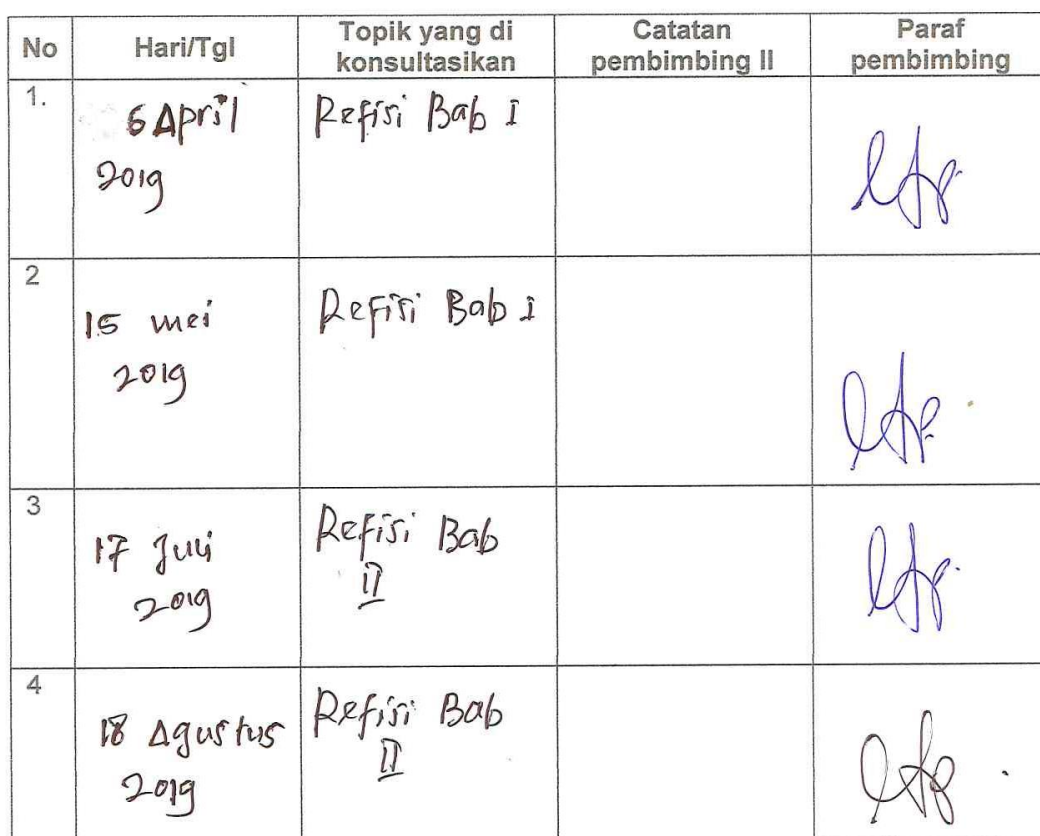 No
Hari/Tgl
Topik yang di
konsultasikan
Catatan
pembimbing II
Paraf
pembimbing
1.
6 April
2019
Refisi Bab I
2
15 mei
2019
Refisi Bab I
3
17 Juli
2019
Refisi Bab
II
4
18 Agustus
2019
Refisi Bab
II